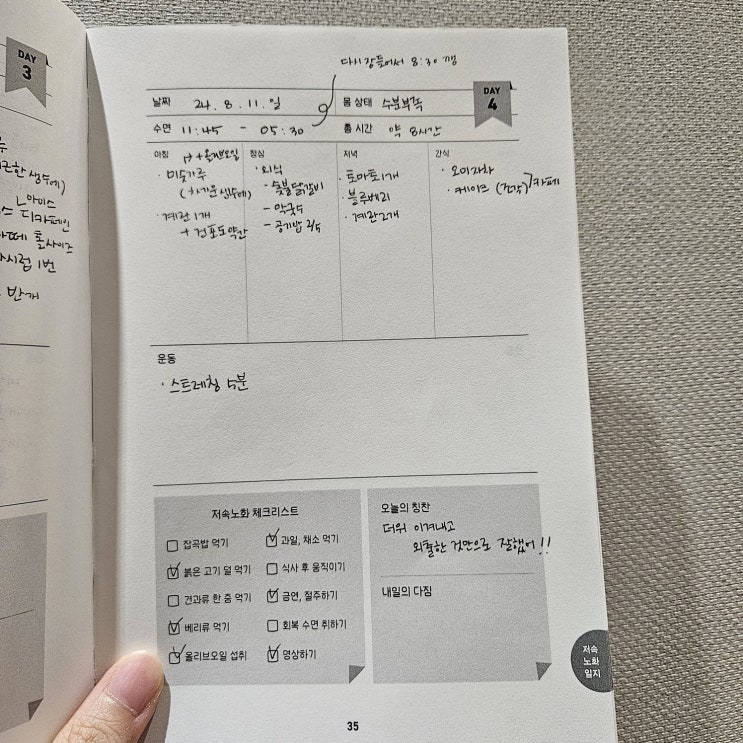 DAY
3
근한 생수에)
디카페인
톨사이즈
시럼 1번
반개
다시 잠들어서 8:30 깸
DAY
4
날짜 24. 8. 11. 일
몸 상태 수분부족
수면 11:45 - 05:30
총 시간 약 8시간
아침
+ 올리브오일
· 미숫가루
(차가운 생수에)
· 계란 1개
+ 건포도 약간
점심
· 외식
- 숯불 닭갈비
- 막국수
- 공기밥 2/5
저녁
· 토마토 1개
· 블루베리
· 계란 2개
간식
· 오미자차
· 케이크 (조각)
카페
운동
· 스트레칭 5분
저속노화 체크리스트
잡곡밥 먹기
과일, 채소 먹기
붉은 고기 덜 먹기
식사 후 움직이기
견과류 한 줌 먹기
금연, 절주하기
베리류 먹기
회복 수면 취하기
올리브오일 섭취
명상하기
오늘의 칭찬
더위 이겨내고
외출한 것만으로 잘했어!!
내일의 다짐
저속
노화
일지
35